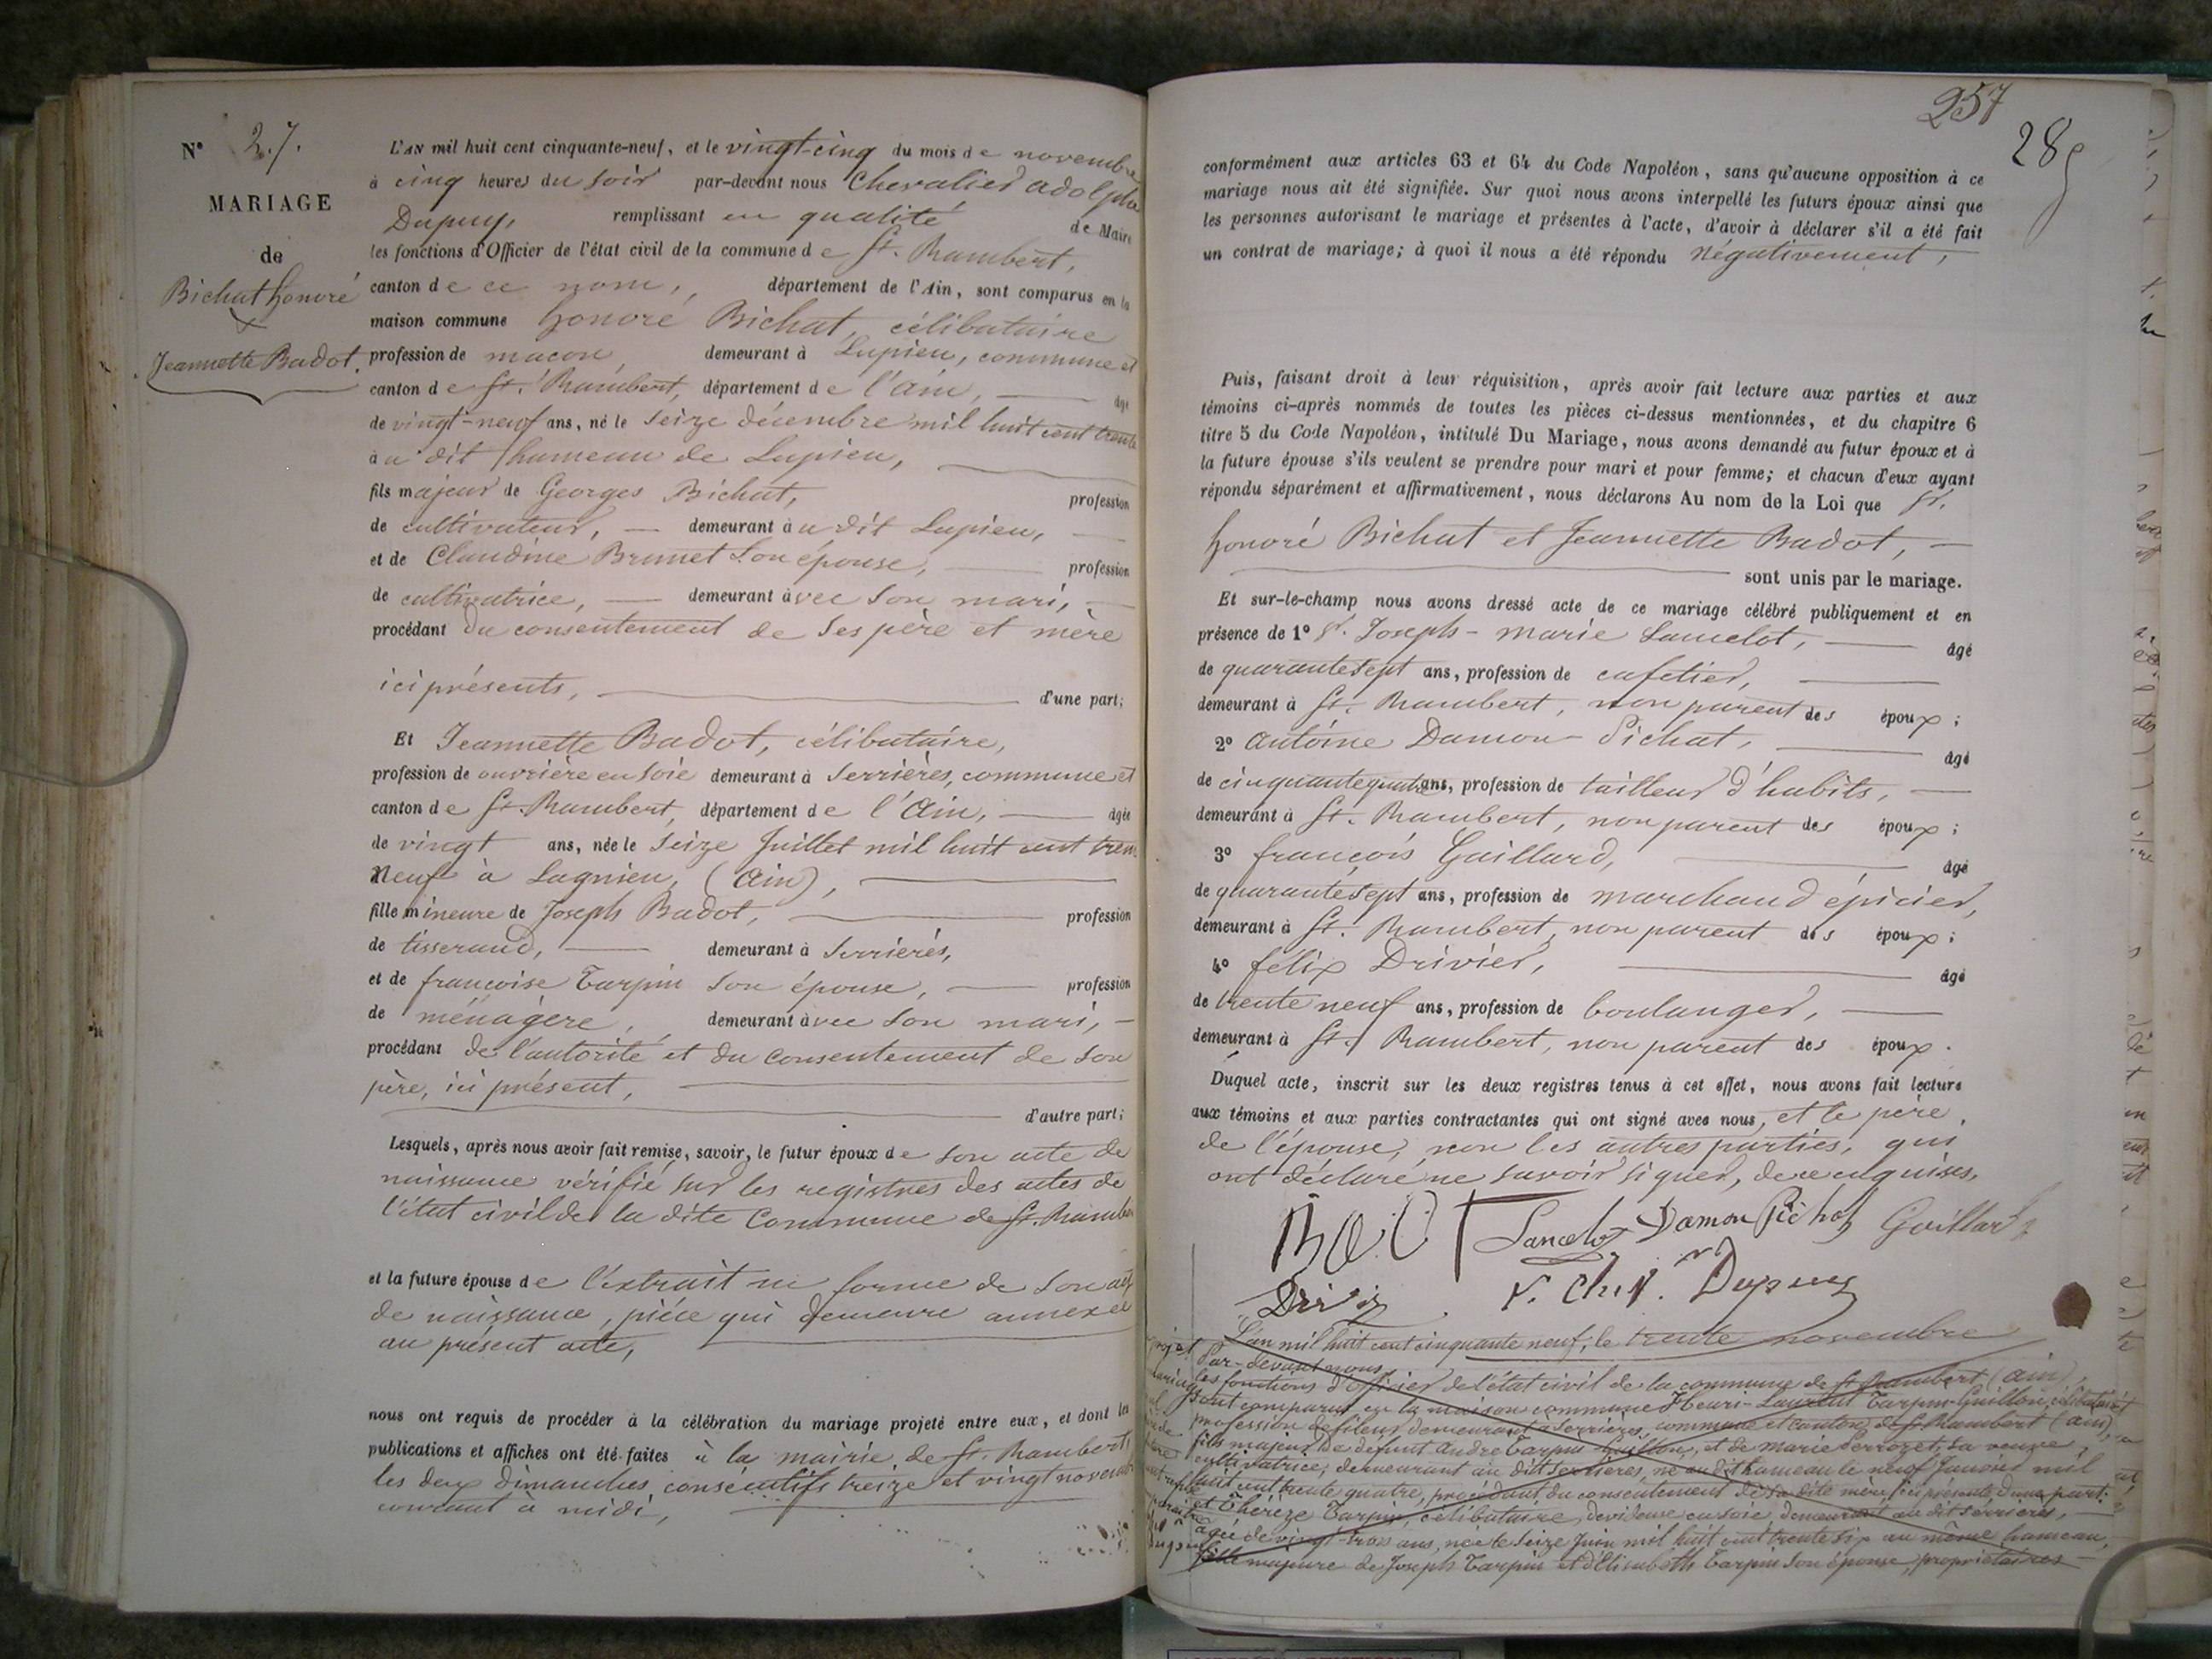 N° 27.
MARIAGE
de
Bichat honoré
&
Jeannette Badot.
L'AN mil huit cent cinquante-neuf, et le vingt-cinq du mois de novembre
à cinq heures du soir par-devant nous Chevalier adolphe
Dupuy, remplissant en qualité de Maire
les fonctions d'Officier de l'état civil de la commune de St. Rambert,
canton de ce nom, département de l'Ain, sont comparus en la
maison commune honoré Bichat, célibataire
profession de macon, demeurant à Lupieu, commune et
canton de St. Rambert, département de l'ain, âgé
de vingt-neuf ans, né le seize décembre mil huit cent trente
au dit hameau de Lupieu,
fils majeur de Georges Bichat, profession
de cultivateur, demeurant au dit Lupieu,
et de Claudine Brunet son épouse, profession
de cultivatrice, demeurant avec son mari,
procédant du consentement de ses père et mère
ici présents, d'une part;
Et Jeannette Badot, célibataire,
profession de ouvrière en soie demeurant à Serrières, commune et
canton de St. Rambert, département de l'ain, âgée
de vingt ans, née le seize Juillet mil huit cent trente
neuf à Lagnieu, (ain),
fille mineure de Joseph Badot, profession
de tisserand, demeurant à Serrières,
et de françoise Tarpin son épouse, profession
de ménagère, demeurant avec son mari,
procédant de l'autorité et du consentement de son
père, ici présent,
d'autre part;
Lesquels, après nous avoir fait remise, savoir, le futur époux de son acte de
naissance vérifié sur les registres des actes de
l'état civil de la dite Commune de St. Rambert
et la future épouse de l'extrait en forme de son acte
de naissance, pièce qui demeure annexée
au présent acte,
nous ont requis de procéder à la célébration du mariage projeté entre eux, et dont les
publications et affiches ont été faites à la mairie de St. Rambert
les deux dimanches consécutifs treize et vingt novembre
courant à midi,
257
289
conformément aux articles 63 et 64 du Code Napoléon, sans qu'aucune opposition à ce
mariage nous ait été signifiée. Sur quoi nous avons interpellé les futurs époux ainsi que
les personnes autorisant le mariage et présentes à l'acte, d'avoir à déclarer s'il a été fait
un contrat de mariage; à quoi il nous a été répondu négativement,
Puis, faisant droit à leur réquisition, après avoir fait lecture aux parties et aux
témoins ci-après nommés de toutes les pièces ci-dessus mentionnées, et du chapitre 6
titre 5 du Code Napoléon, intitulé Du Mariage, nous avons demandé au futur époux et à
la future épouse s'ils veulent se prendre pour mari et pour femme; et chacun d'eux ayant
répondu séparément et affirmativement, nous déclarons Au nom de la Loi que Sr.
honoré Bichat et Jeannette Badot,
sont unis par le mariage.
Et sur-le-champ nous avons dressé acte de ce mariage célébré publiquement et en
présence de 1° Sr. Joseph-marie Lancelot, âgé
de quarante sept ans, profession de cafetier,
demeurant à St. Rambert, non parent des époux;
2° antoine Damon-Pichat, âgé
de cinquante quatre ans, profession de tailleur d'habits,
demeurant à St. Rambert, non parent des époux;
3° françois Gaillard, âgé
de quarante sept ans, profession de marchand épicier,
demeurant à St. Rambert, non parent des époux;
4° félix Drivier, âgé
de trente neuf ans, profession de boulanger,
demeurant à St. Rambert, non parent des époux.
Duquel acte, inscrit sur les deux registres tenus à cet effet, nous avons fait lecture
aux témoins et aux parties contractantes qui ont signé avec nous, et le père
de l'épouse, non les autres parties, qui
ont déclaré ne savoir signer, de ce enquises.
Lancelot Damon Pichat Gaillard
Dupuy
L'an mil huit cent cinquante neuf, le trente novembre
Par-devant nous,
les fonctions d'officier de l'état civil de la commune de St Rambert (ain),
sont comparus en la maison commune Henri-Laurent Tarpin-Guillon, célibataire,
profession de fileur, demeurant à Serrières, commune et canton de St. Rambert (ain),
fils majeur de défunt andré Tarpin-Guillon, et de marie Perrozet, sa veuve,
cultivatrice, demeurant au dit Serrières, né au dit hameau le neuf Janvier mil
huit cent trente quatre, procédant du consentement de sa dite mère, ici présente, d'une part;
et Thérèze Tarpin, célibataire, dévideuse en soie, demeurant au dit Serrières,
âgée de vingt-trois ans, née le seize Juin mil huit cent trente six au même hameau,
fille majeure de Joseph Tarpin et d'Elisabeth Tarpin son épouse, propriétaires